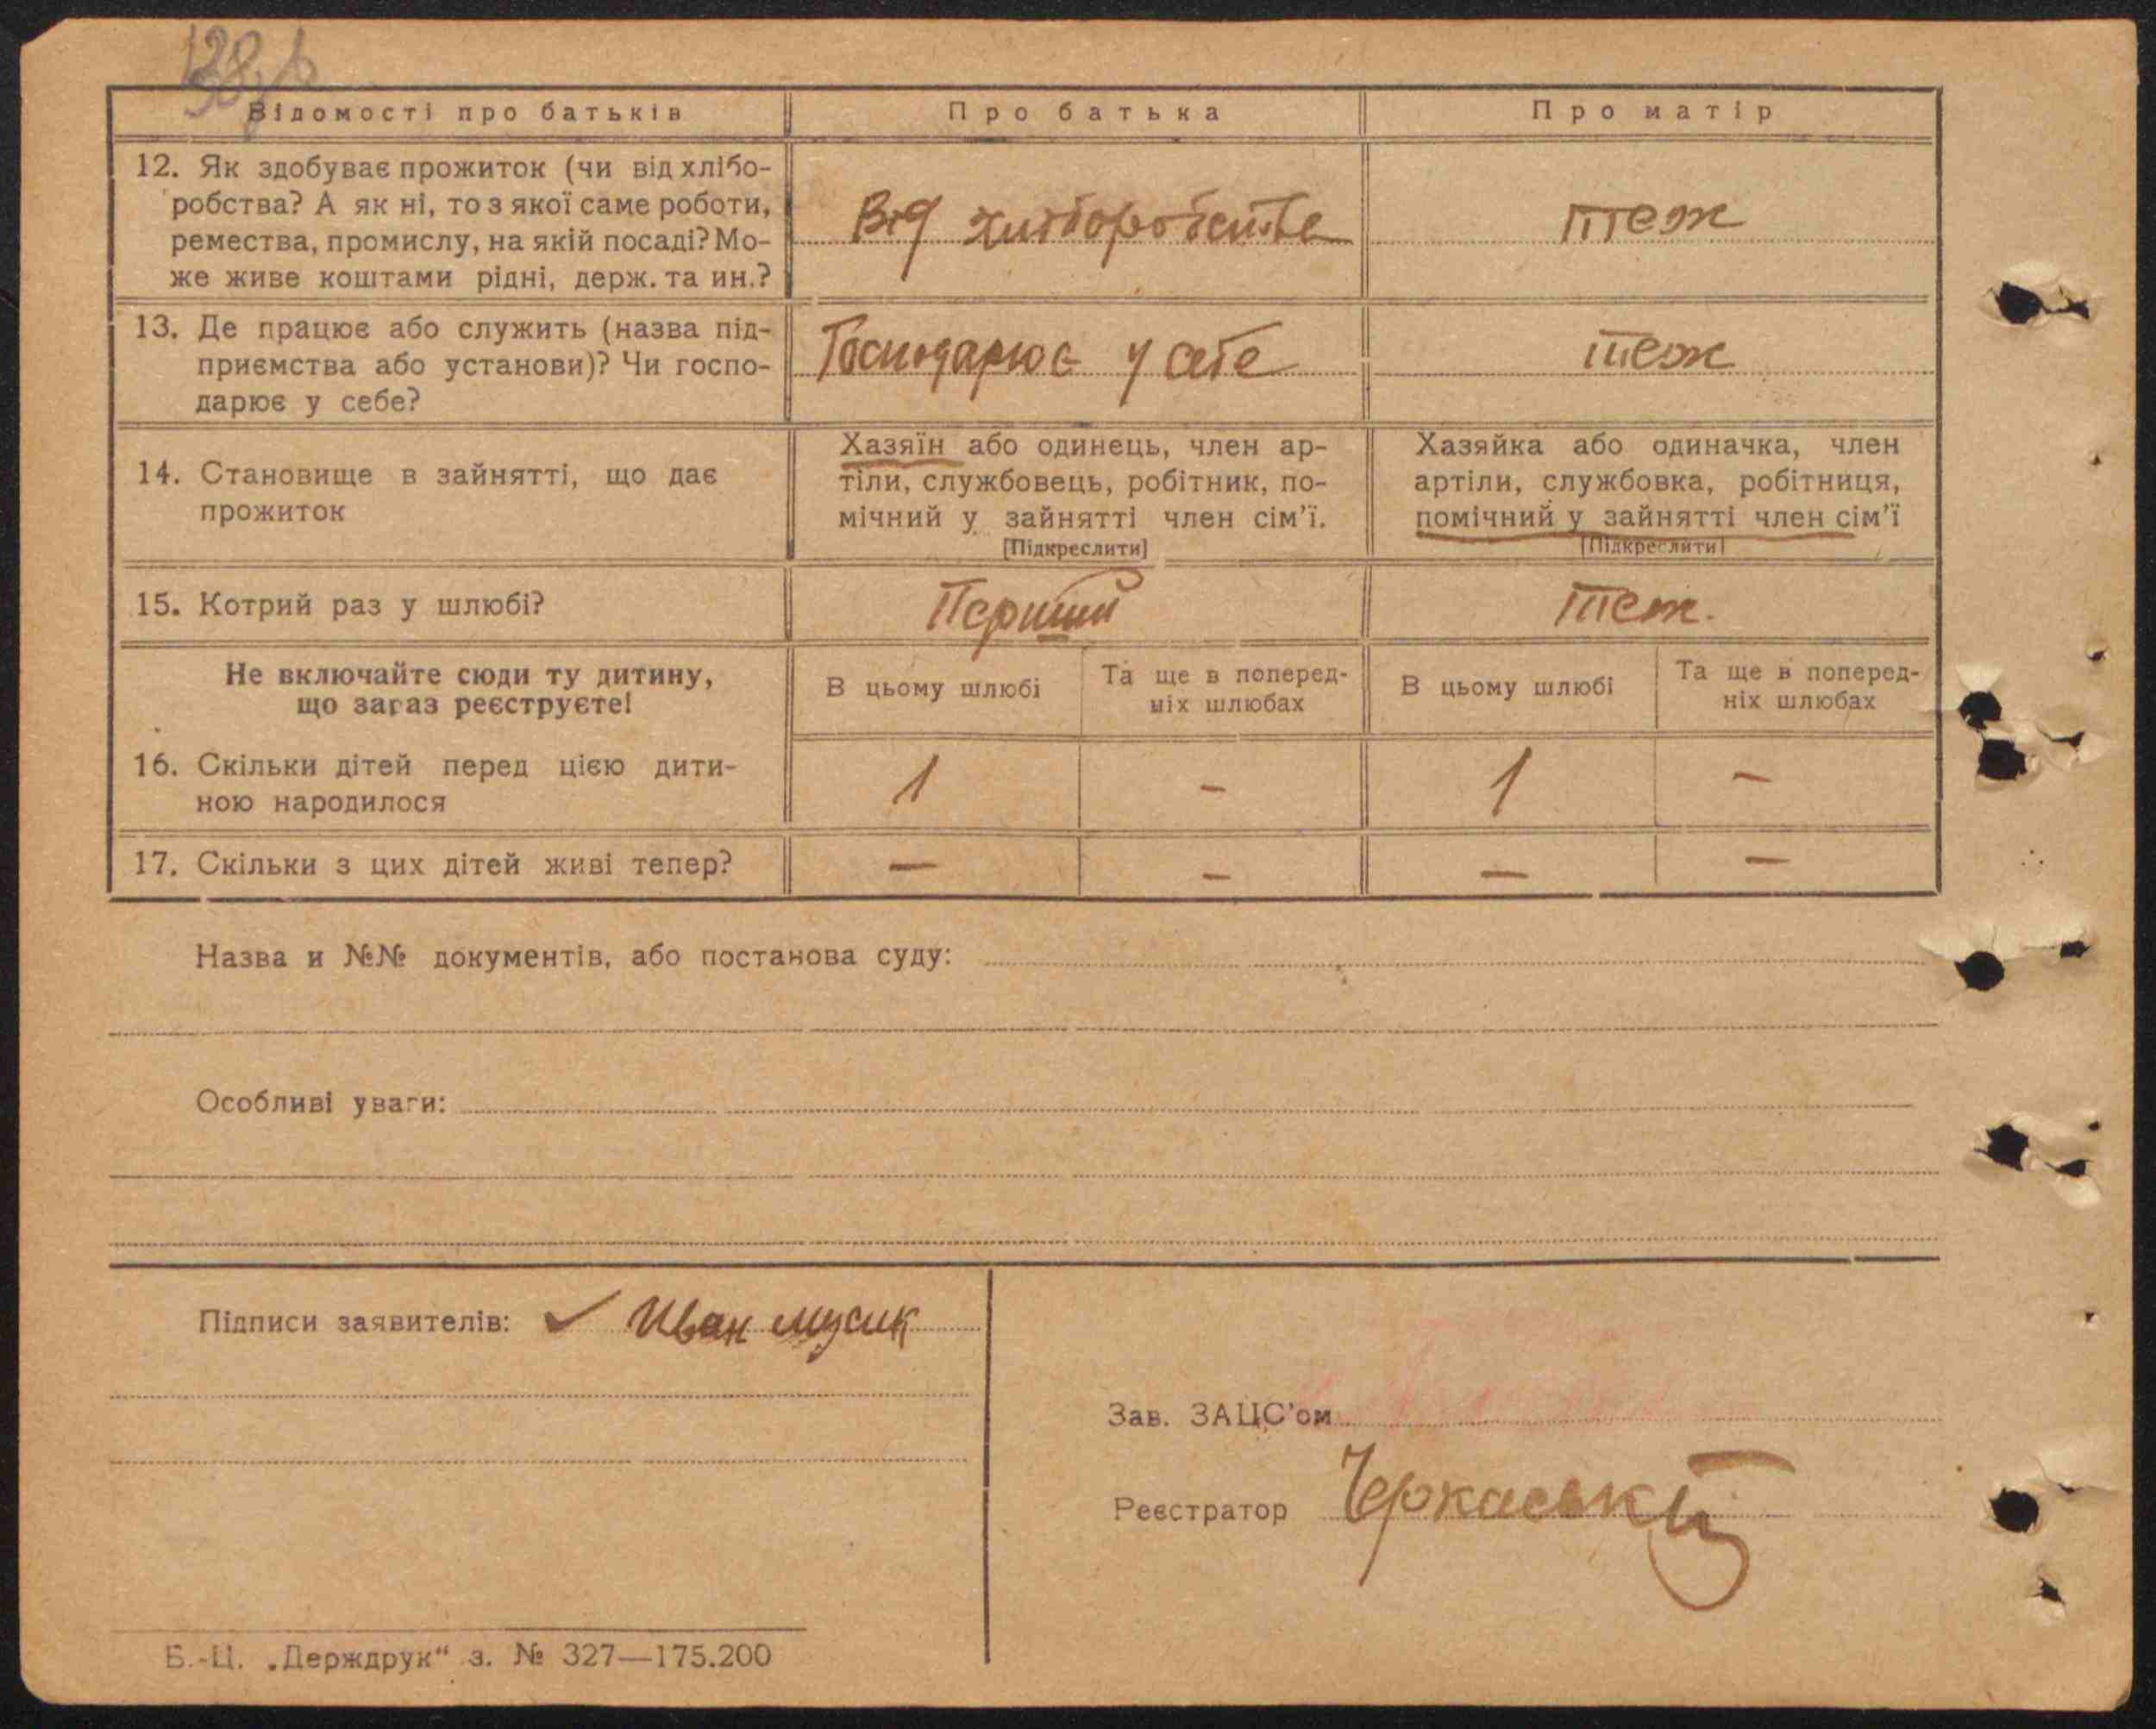 Відомості про батьків
Про батька
Про матір
12. Як здобуває прожиток (чи від хлібо-
робства? А як ні, то з якої саме роботи,
ремества, промислу, на якій посаді? Мо-
же живе коштами рідні, держ. та ин.?
Від хліборобства
теж
13. Де працює або служить (назва під-
приємства або установи)? Чи госпо-
дарює у себе?
Господарює у себе
теж
14. Становище в зайнятті, що дає
прожиток
Хазяїн або одинець, член ар-
тіли, службовець, робітник, по-
мічний у зайнятті член сім'ї.
[Підкреслити]
Хазяйка або одиначка, член
артіли, службовка, робітниця,
помічний у зайнятті член сім'ї
[Підкреслити]
15. Котрий раз у шлюбі?
Перший
теж.
Не включайте сюди ту дитину,
що зараз реєструєте!
В цьому шлюбі
Та ще в поперед-
ніх шлюбах
В цьому шлюбі
Та ще в поперед-
ніх шлюбах
16. Скільки дітей перед цією дити-
ною народилося
1
-
1
-
17. Скільки з цих дітей живі тепер?
—
—
—
—
Назва и №№ документів, або постанова суду:
Особливі уваги:
Підписи заявителів: Иван мусик
Зав. ЗАЦС'ом
Реєстратор Черкаський
Б.-Ц. „Держдрук“ з. № 327—175.200